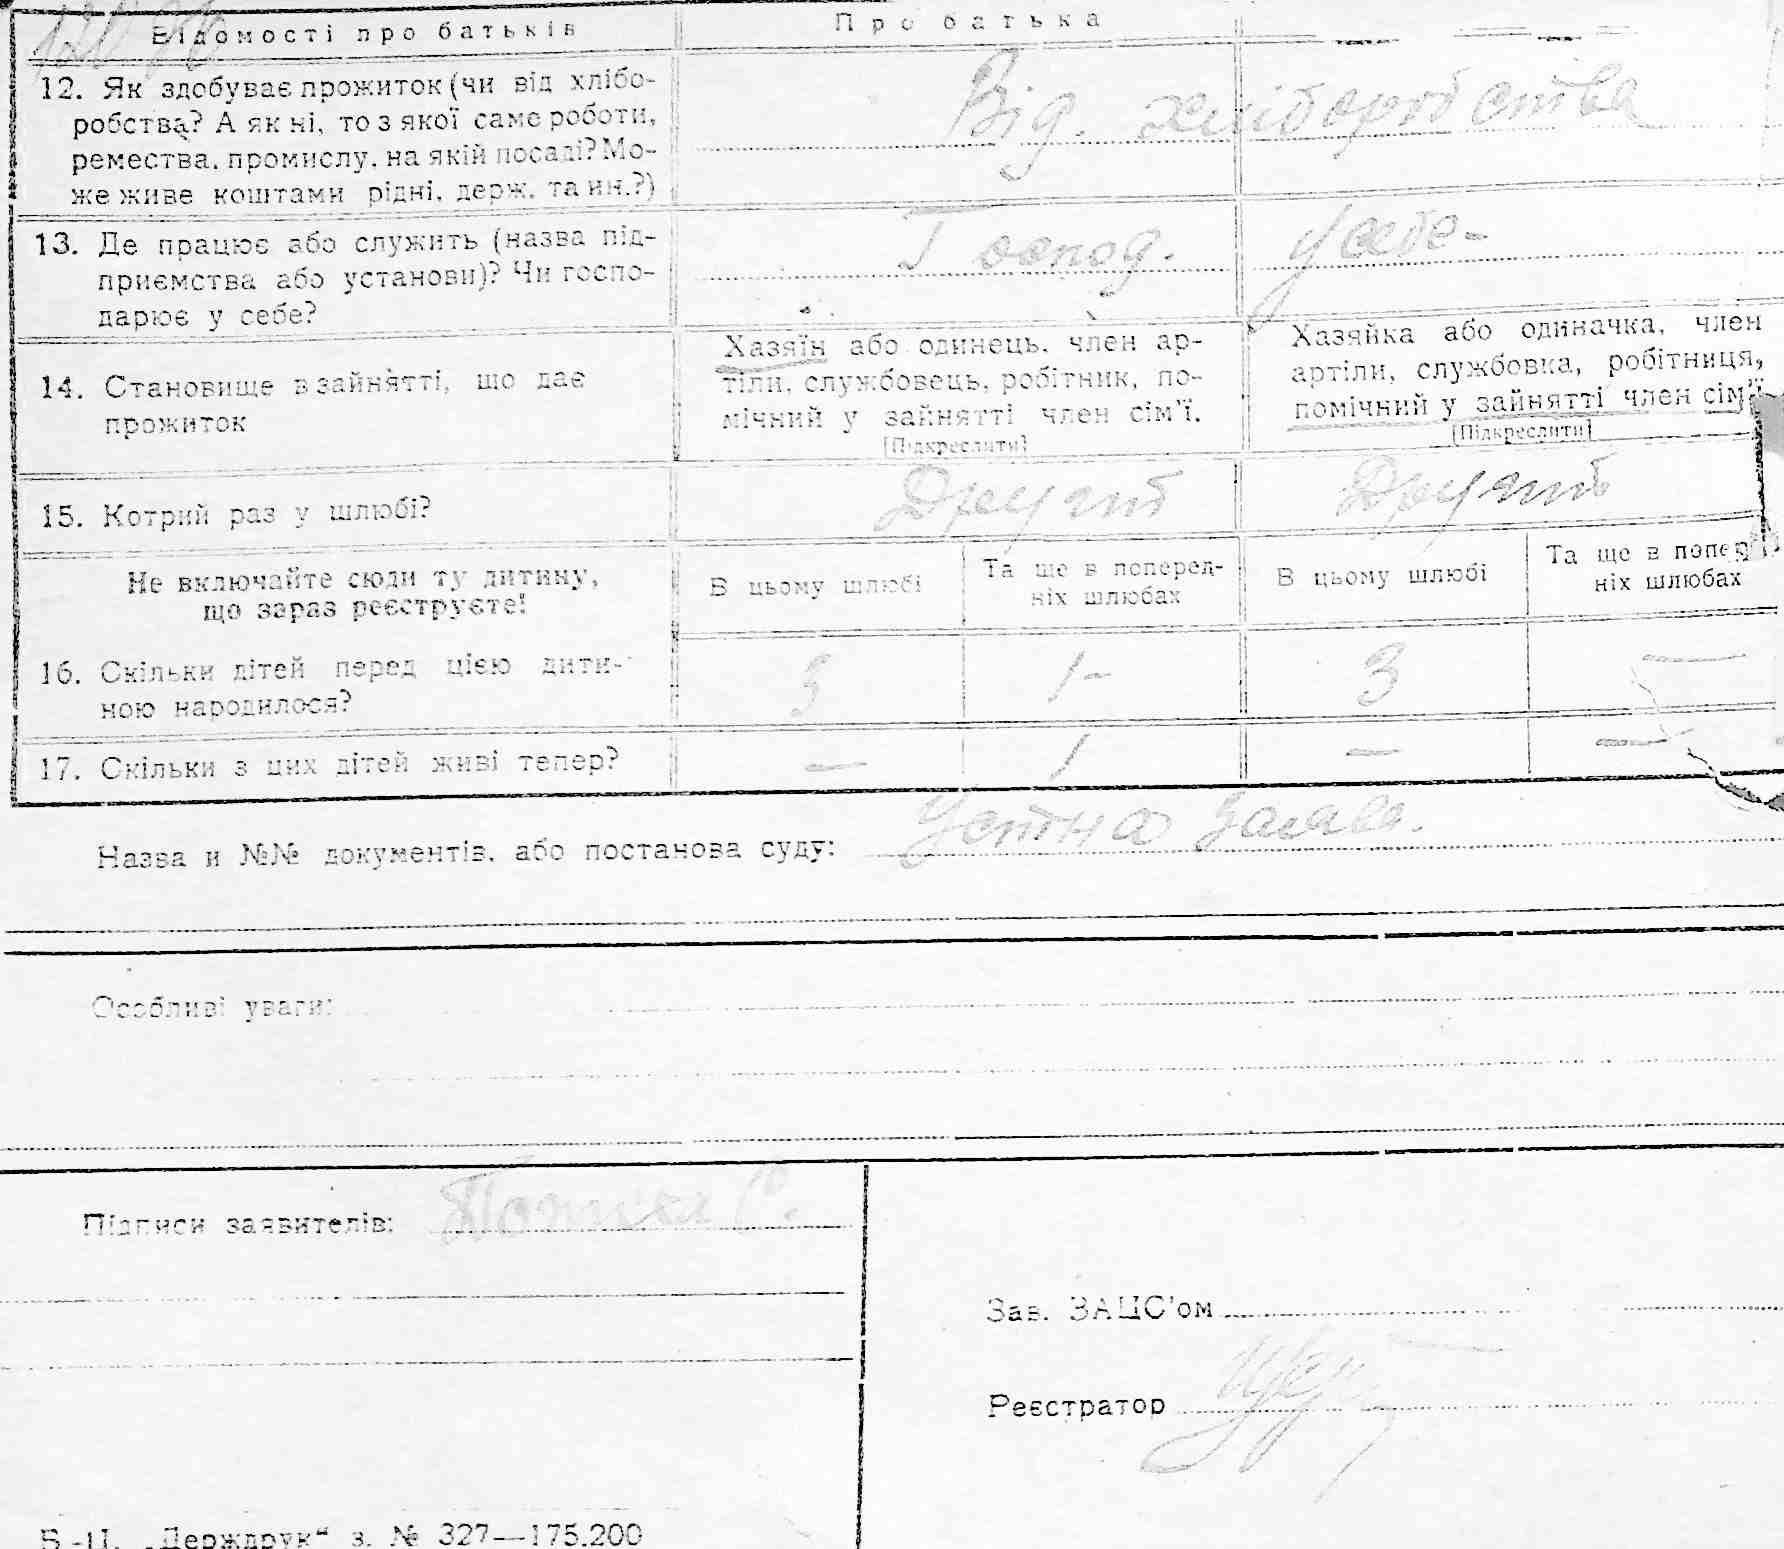 Відомості про батьків
Про батька
12. Як здобуває прожиток (чи від хлібо-
робства? А як ні, то з якої саме роботи,
ремества, промислу, на якій посаді? Мо-
же живе коштами рідні, держ. та ин.?)
Від. хліборобства
13. Де працює або служить (назва під-
приємства або установи)? Чи госпо-
дарює у себе?
Господ. у себе-
14. Становище в зайнятті, що дає
прожиток
Хазяїн або одинець, член ар-
тіли, службовець, робітник, по-
мічний у зайнятті член сім'ї.
[Підкреслити]
Хазяйка або одиначка, член
артіли, службовка, робітниця,
помічний у зайнятті член сім'ї
[Підкреслити]
15. Котрий раз у шлюбі?
Другий
Другий
Не включайте сюди ту дитину,
що зараз реєструєте!
В цьому шлюбі
Та ще в поперед-
ніх шлюбах
В цьому шлюбі
Та ще в попер
ніх шлюбах
16. Скільки дітей перед цією дити-
ною народилося?
3 1- 3 —
17. Скільки з цих дітей живі тепер?
— 1 — —
Назва и №№ документів, або постанова суду: Устна заява.
Особливі уваги:
Підписи заявителів:
Зав. ЗАЦС'ом
Реєстратор
Б.-Ц. „Держдрук“ з. № 327—175.200